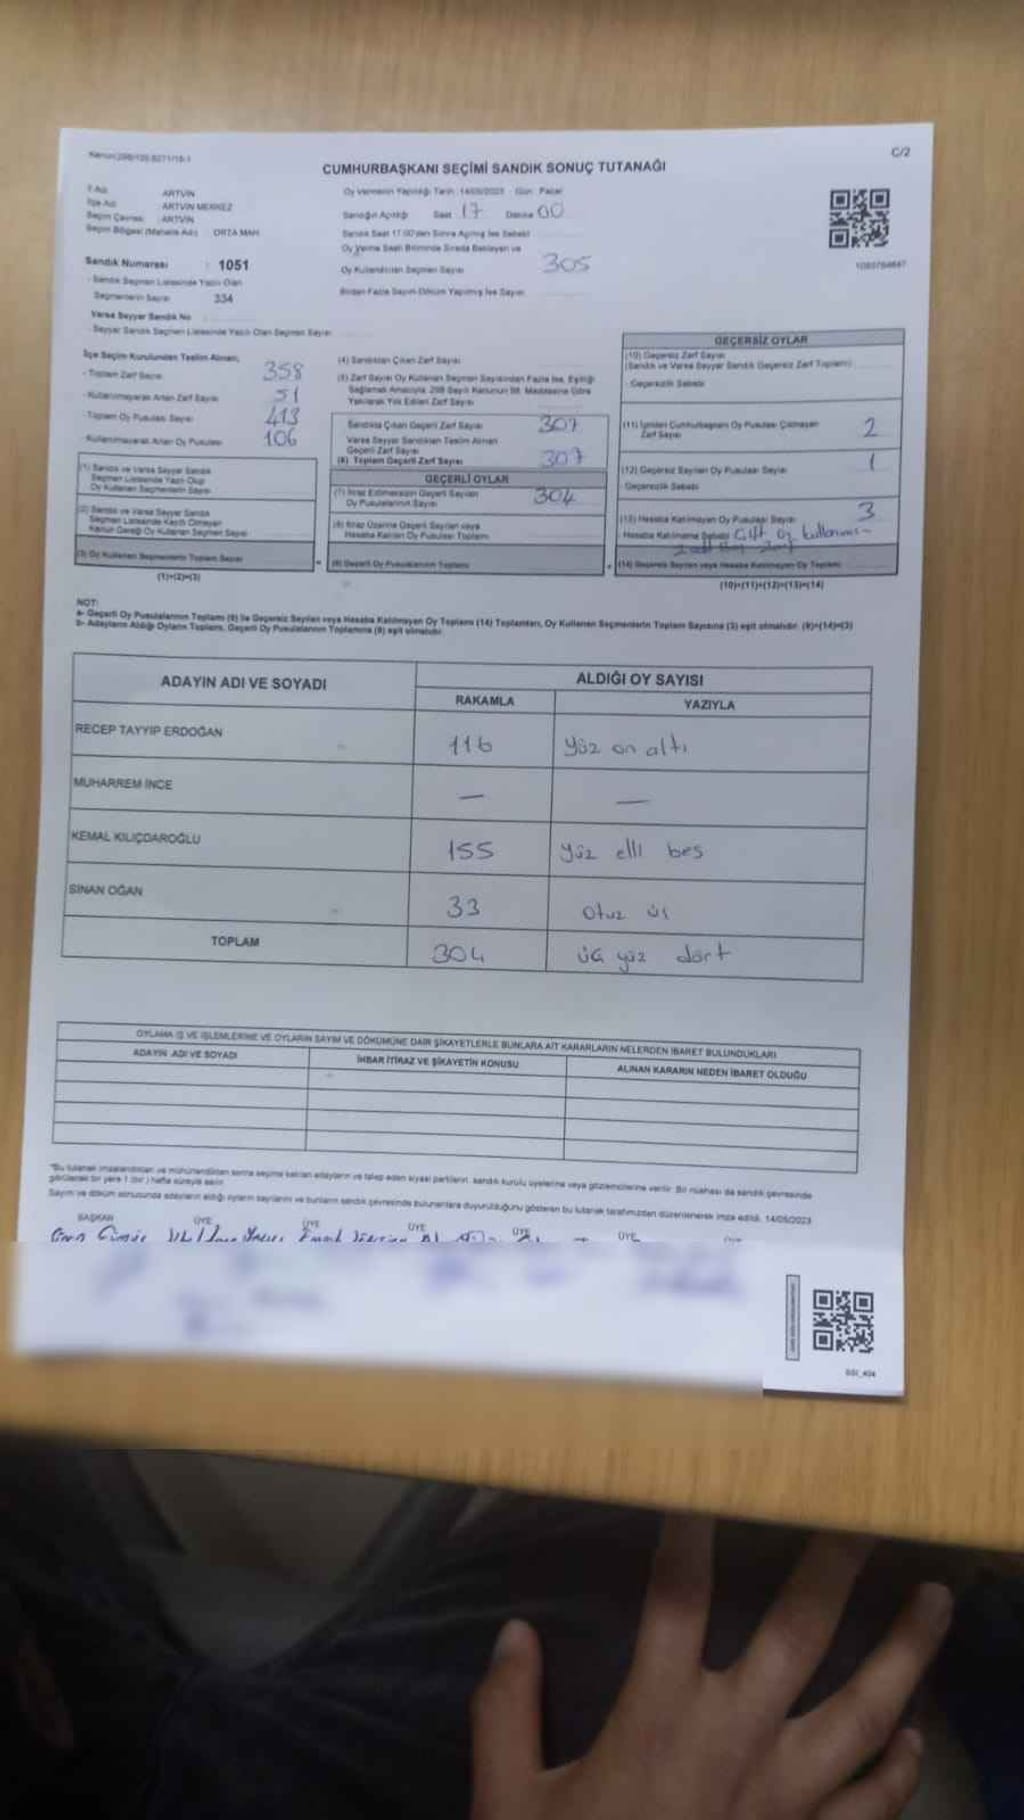 C/2
CUMHURBAŞKANI SEÇİMİ SANDIK SONUÇ TUTANAĞI
İl Adı ARTVİN
İlçe Adı ARTVİN MERKEZ
Seçim Çevresi ARTVİN
Seçim Bölgesi (Mahalle Adı) ORTA MAH
Sandık Numarası : 1051
Sandık Seçmen Listesinde Yazılı Olan
Seçmenlerin Sayısı 334
Varsa Seyyar Sandık No
Seyyar Sandık Seçmen Listesinde Yazılı Olan Seçmen Sayısı
Oy Vermenin Yapıldığı Tarih 14/05/2023 Gün: Pazar
Sandığın Açıldığı Saat 17 Dakika 00
Sandık Saat 17.00'den Sonra Açılmış İse Sebebi
Oy Verme Saati Bitiminde Sırada Bekleyen ve
Oy Kullandırılan Seçmen Sayısı 305
Birden Fazla Sayım Döküm Yapılmış İse Sayısı
İlçe Seçim Kurulundan Teslim Alınan;
- Toplam Zarf Sayısı 358
- Kullanılmayarak Artan Zarf Sayısı 51
- Toplam Oy Pusulası Sayısı 413
- Kullanılmayarak Artan Oy Pusulası 106
(1) Sandık ve Varsa Seyyar Sandık
Seçmen Listesinde Yazılı Olup
Oy Kullanan Seçmenlerin Sayısı
(2) Sandık ve Varsa Seyyar Sandık
Seçmen Listesinde Kayıtlı Olmayan
Kanun Gereği Oy Kullanan Seçmen Sayısı
(3) Oy Kullanan Seçmenlerin Toplam Sayısı
(1)+(2)=(3)
(4) Sandıktan Çıkan Zarf Sayısı
(5) Zarf Sayısı Oy Kullanan Seçmen Sayısından Fazla İse, Eşitliği
Sağlamak Amacıyla, 298 Sayılı Kanunun 98. Maddesine Göre
Yakılarak Yok Edilen Zarf Sayısı
Sandıkta Çıkan Geçerli Zarf Sayısı 307
Varsa Seyyar Sandıktan Teslim Alınan
Geçerli Zarf Sayısı
(6) Toplam Geçerli Zarf Sayısı 307
GEÇERLİ OYLAR
(7) İtiraz Edilmeksizin Geçerli Sayılan
Oy Pusulalarının Sayısı 304
(8) İtiraz Üzerine Geçerli Sayılan veya
Hesaba Katılan Oy Pusulası Toplamı
(9) Geçerli Oy Pusulalarının Toplamı
GEÇERSİZ OYLAR
(10) Geçersiz Zarf Sayısı
(Sandık ve Varsa Seyyar Sandık Geçersiz Zarf Toplamı)
Geçersizlik Sebebi
(11) İçinden Cumhurbaşkanı Oy Pusulası Çıkmayan
Zarf Sayısı 2
(12) Geçersiz Sayılan Oy Pusulası Sayısı 1
Geçersizlik Sebebi
(13) Hesaba Katılmayan Oy Pusulası Sayısı 3
Hesaba Katılmama Sebebi Çift oy kullanımı
(14) Geçersiz Sayılan veya Hesaba Katılmayan Oy Toplamı
(10)+(11)+(12)+(13)=(14)
NOT:
a- Geçerli Oy Pusulalarının Toplamı (9) ile Geçersiz Sayılan veya Hesaba Katılmayan Oy Toplamı (14) Toplamları, Oy Kullanan Seçmenlerin Toplam Sayısına (3) eşit olmalıdır. (9)+(14)=(3)
b- Adayların Aldığı Oyların Toplamı, Geçerli Oy Pusulalarının Toplamına (9) eşit olmalıdır.
ADAYIN ADI VE SOYADI
ALDIĞI OY SAYISI
RAKAMLA YAZIYLA
RECEP TAYYIP ERDOĞAN 116 yüz on altı
MUHARREM İNCE — —
KEMAL KILIÇDAROĞLU 155 yüz elli beş
SİNAN OĞAN 33 otuz üç
TOPLAM 304 üç yüz dört
OYLAMA İŞ VE İŞLEMLERİNE VE OYLARIN SAYIM VE DÖKÜMÜNE DAİR ŞİKAYETLERLE BUNLARA AİT KARARLARIN NELERDEN İBARET BULUNDUKLARI
ADAYIN ADI VE SOYADI İHBAR İTİRAZ VE ŞİKAYETİN KONUSU ALINAN KARARIN NEDEN İBARET OLDUĞU
"Bu tutanak imzalandıktan ve mühürlendikten sonra seçime katılan adayların ve talep eden siyasi partilerin sandık kurulu üyelerine veya gözlemcilerine verilir. Bir nüshası da sandık çevresinde
görülecek bir yere 1 (bir) hafta süreyle asılır.
Sayım ve döküm sonucunda adayların aldığı oyların sayılarını ve bunların sandık çevresinde bulunanlara duyurulduğunu gösteren bu tutanak tarafımızdan düzenlenerek imza edildi. 14/05/2023
BAŞKAN ÜYE ÜYE ÜYE ÜYE ÜYE